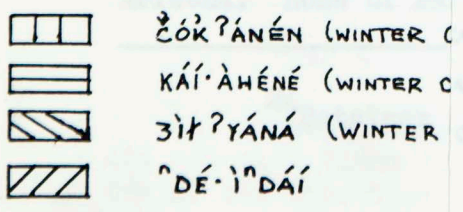 ČÓK̓ ʔÁNÉN (WINTER
KÁÍ·ÀHÉNÉ (WINTER
ʒÌƗ ʔYÁNÁ (WINTER
ⁿDÉ·ÌⁿDÁÍ